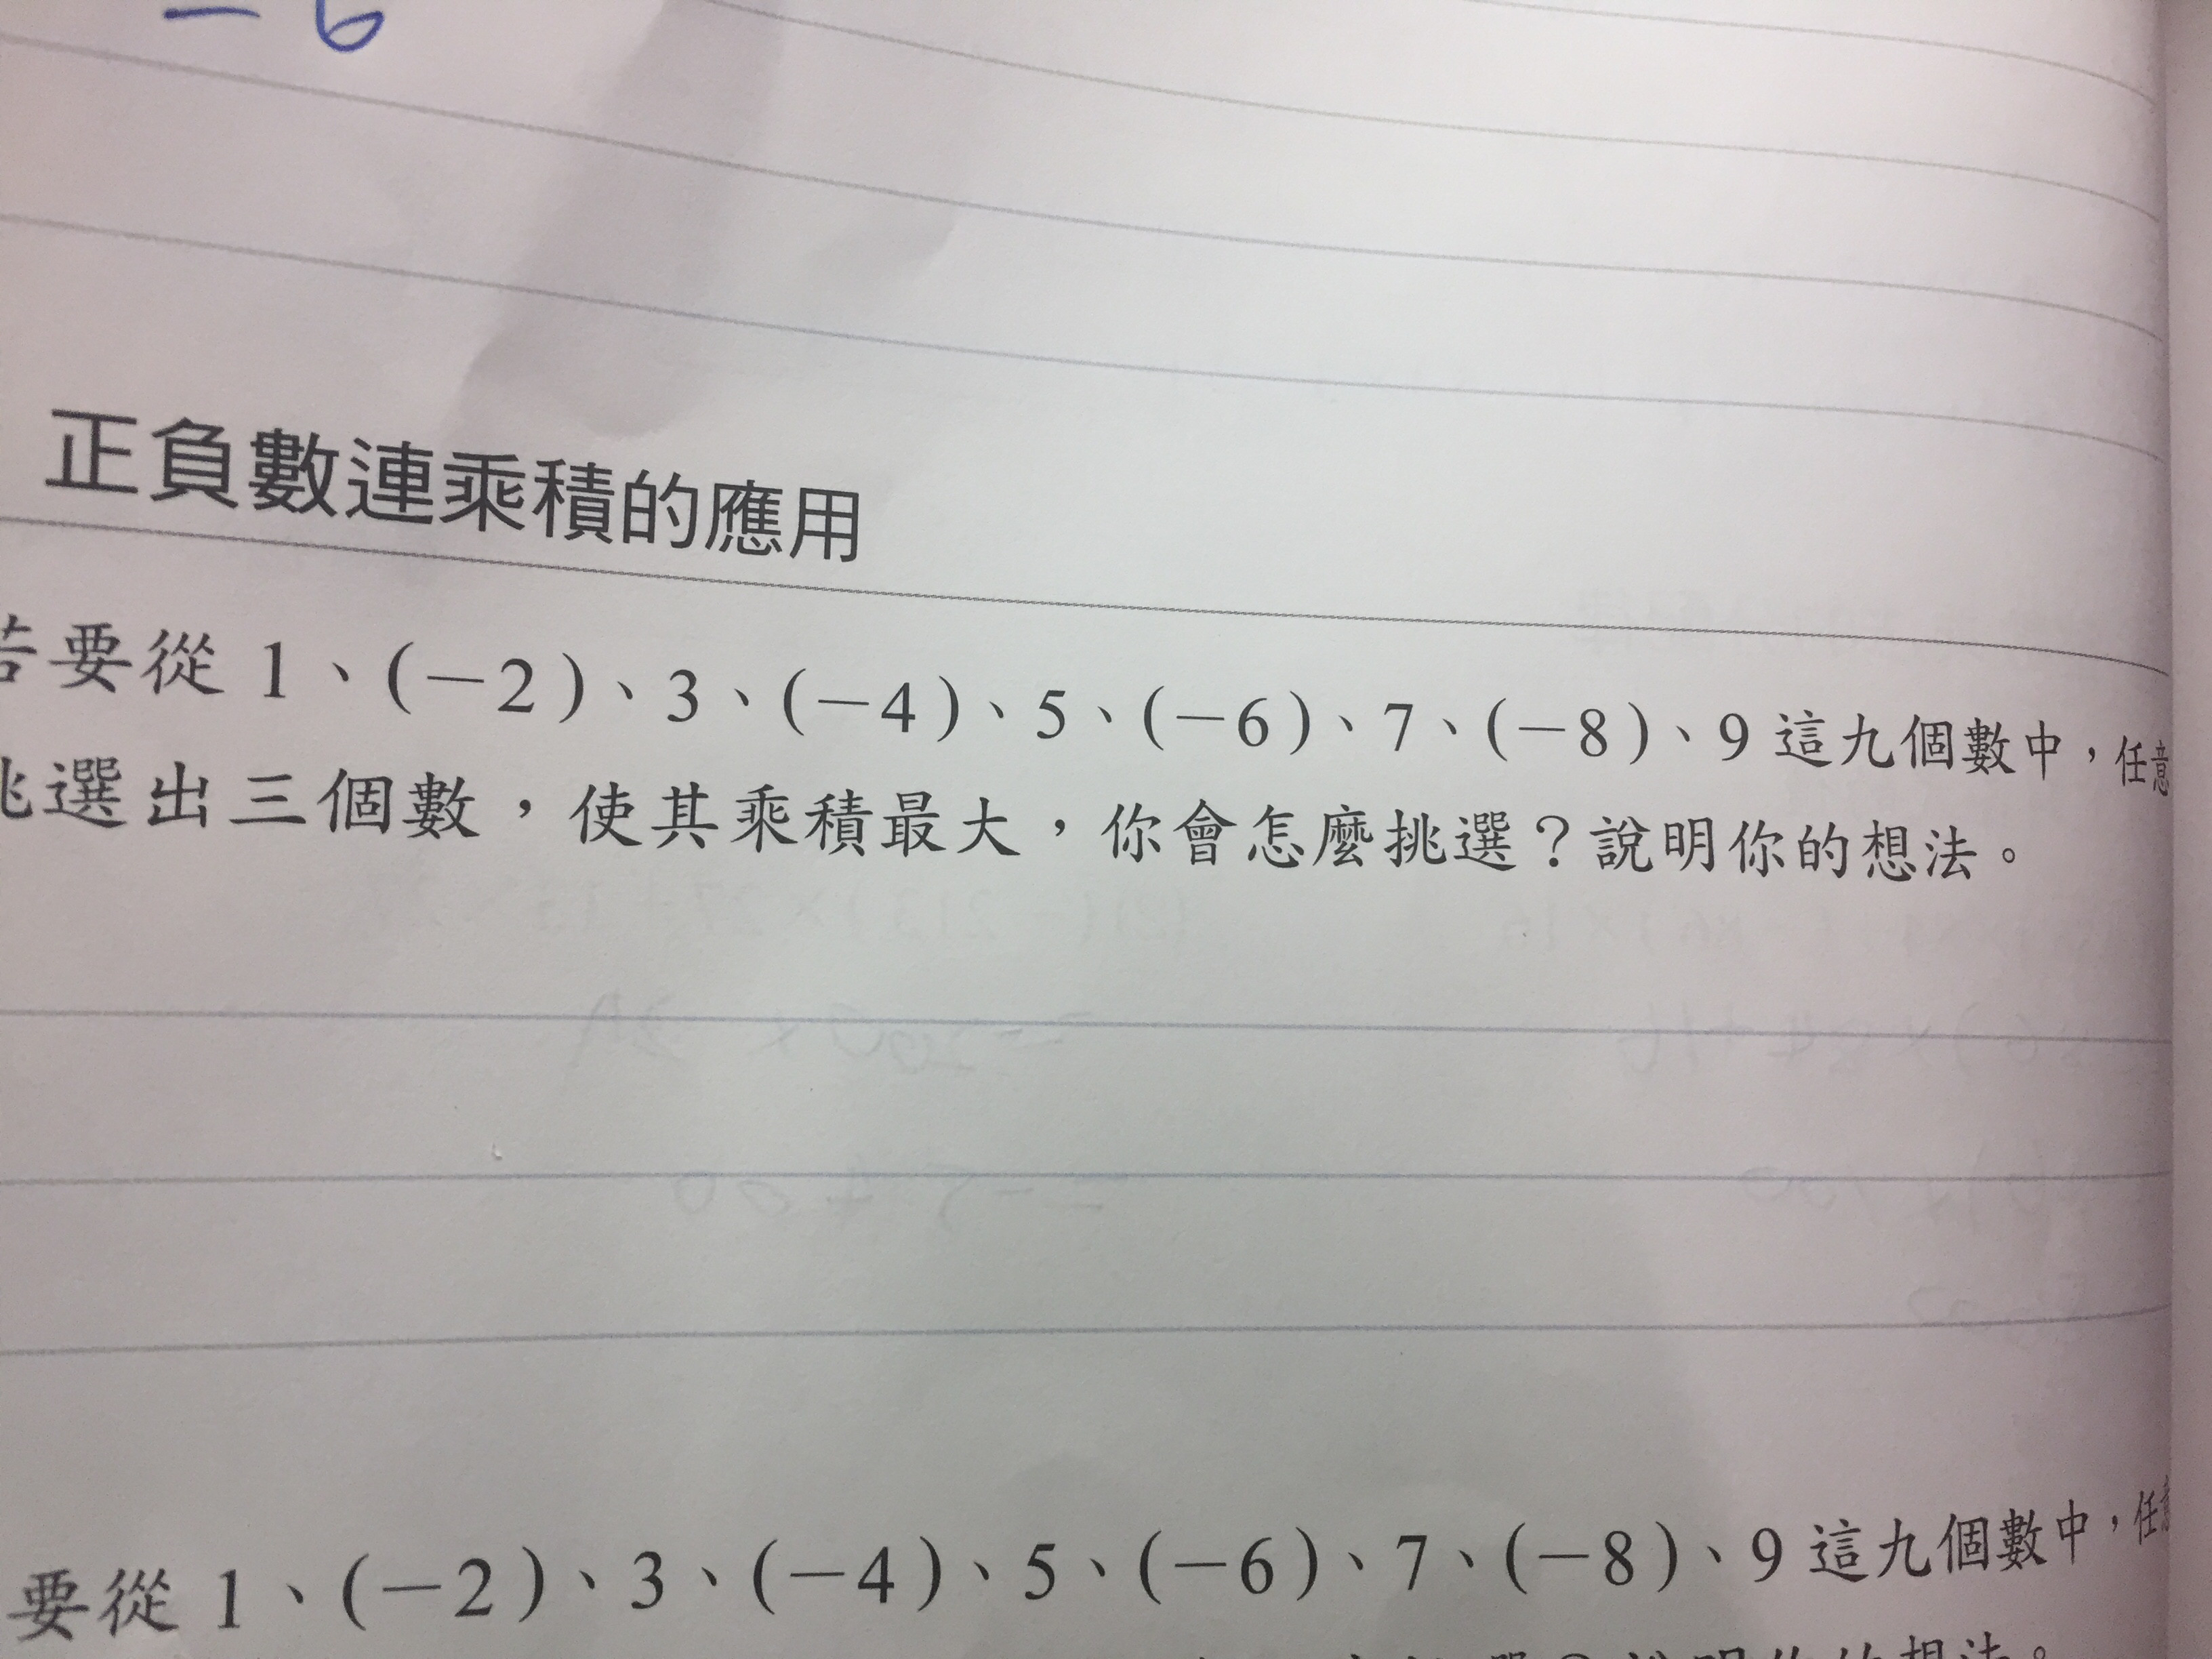 -6
正負數連乘積的應用
要從 1、(-2)、3、(-4)、5、(-6)、7、(-8)、9 這九個數中，任意
挑選出三個數，使其乘積最大，你會怎麼挑選？說明你的想法。
要從 1、(-2)、3、(-4)、5、(-6)、7、(-8)、9 這九個數中，任意
說明你的想法。